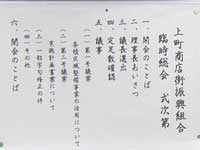 上町商店街振興組合
臨時総会　式次第
一．開会のことば
二．理事長あいさつ
三．議長選出
四．定足数確認
五．議事
（一）第一号議案
各種区域整備事業の活用について
（二）第二号議案
実施計画書案について
（三）
（四）その他
六．閉会のことば